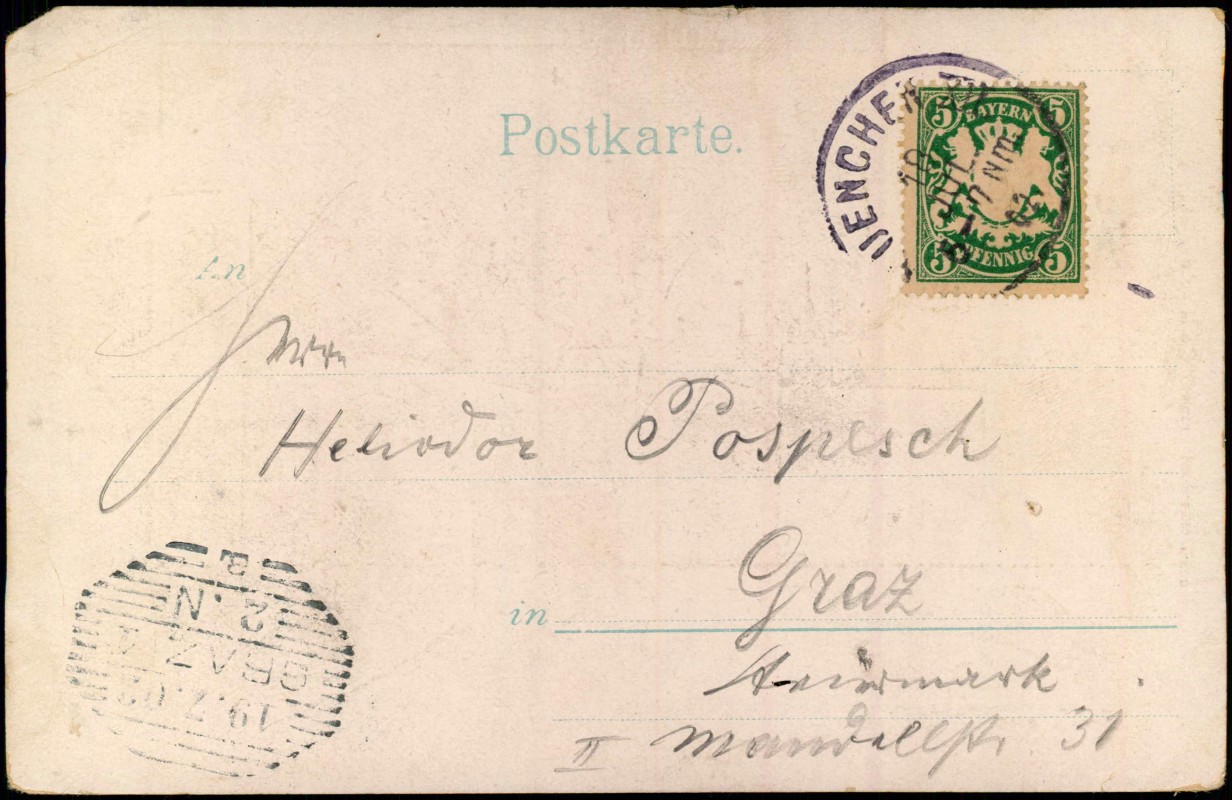 Postkarte.
UENCHEN
5 BAYERN 5
18
JUL
7 NM
5 PFENNIG 5
An
Herrn
Heliodor Pospesch
in Graz
Steiermark
II Mandellstr. 31
2. N
GRAZ 1
19.7.02